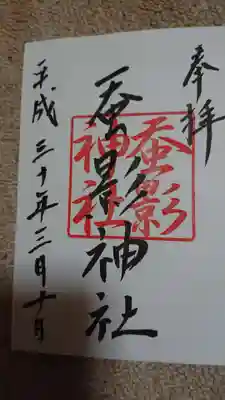 奉拝
蚕影神社
蚕影神社
平成三十年三月十日